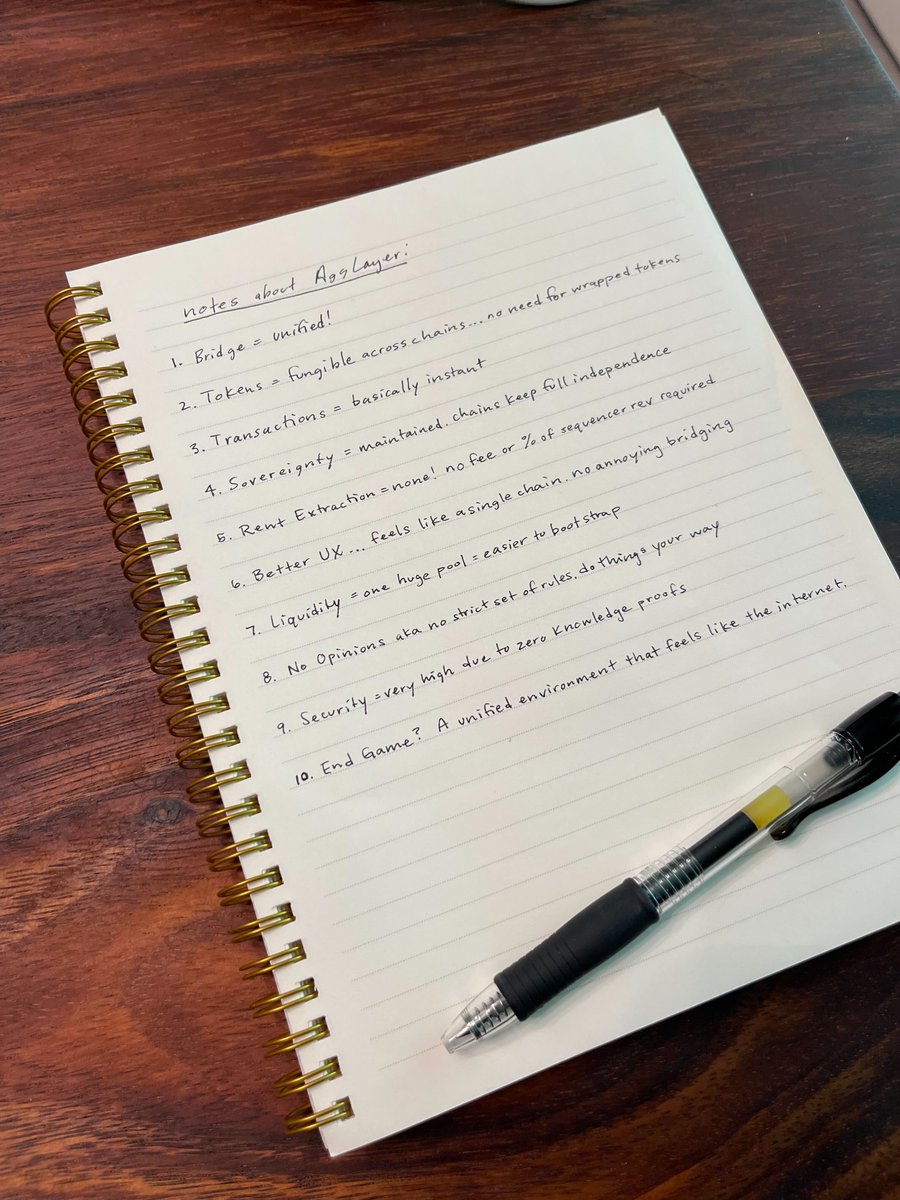 notes about AggLayer:
1. Bridge = unified!
2. Tokens = fungible across chains... no need for wrapped tokens
3. Transactions = basically instant
4. Sovereignty = maintained. chains keep full independence
5. Rent Extraction = none! no fee or % of sequencer rev required
6. Better UX... feels like a single chain. no annoying bridging
7. Liquidity = one huge pool = easier to bootstrap
8. No Opinions aka no strict set of rules. do things your way
9. Security = very high due to zero knowledge proofs
10. End Game? A unified environment that feels like the internet.